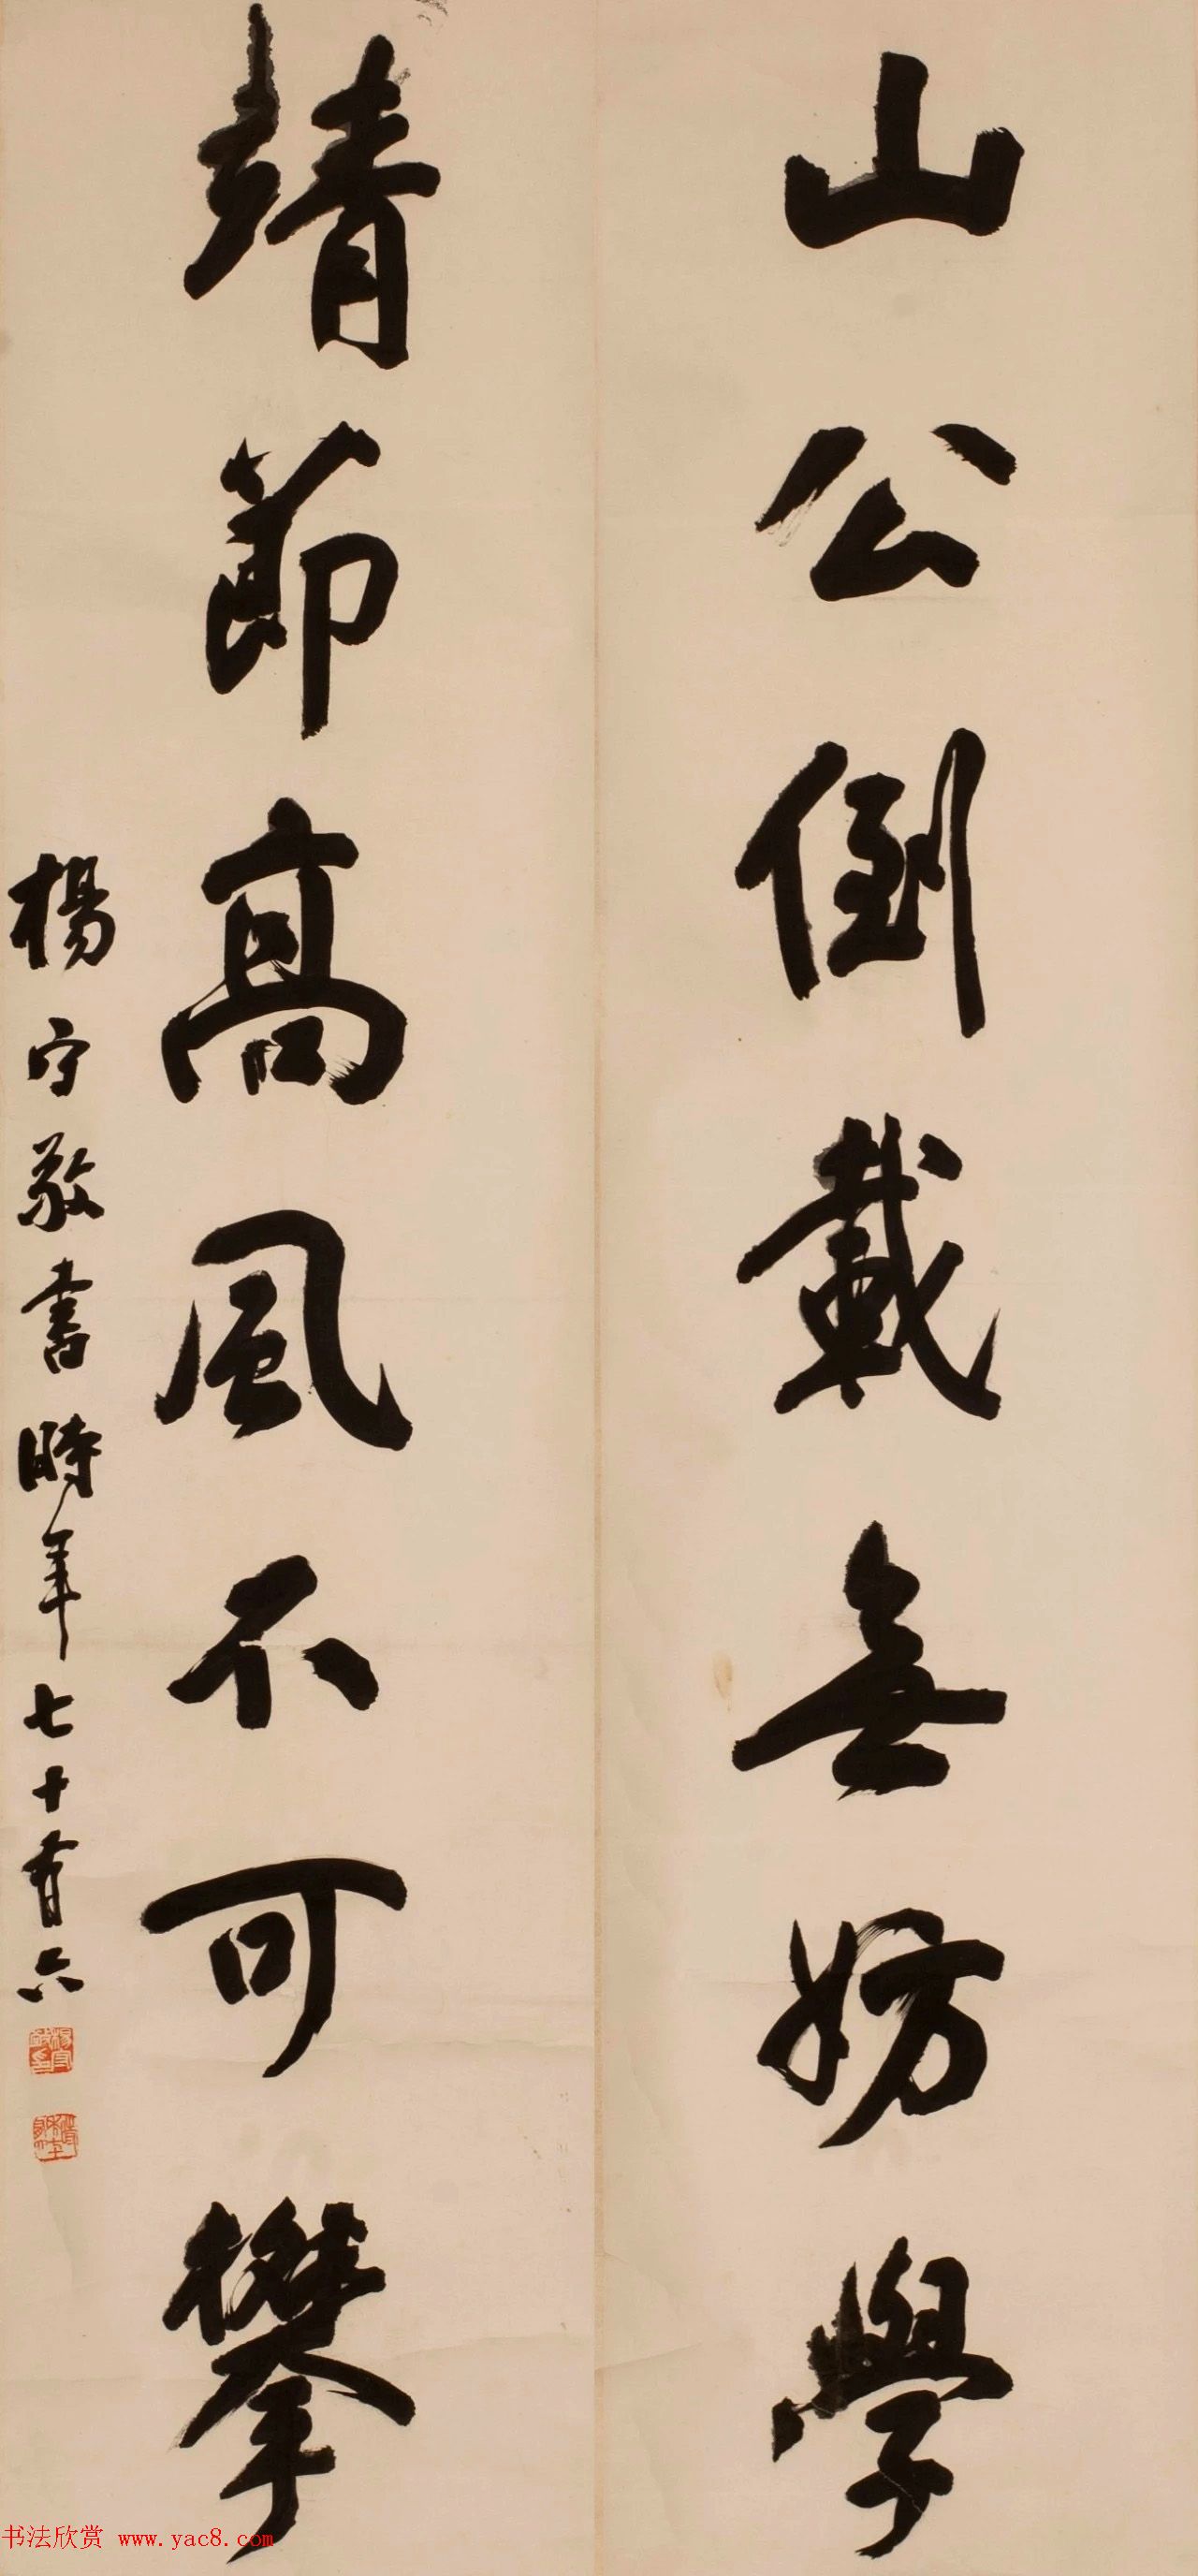 山公倒載無妨學
靖節高風不可攀
楊守敬書時年七十有六
书法欣赏 www.yac8.com